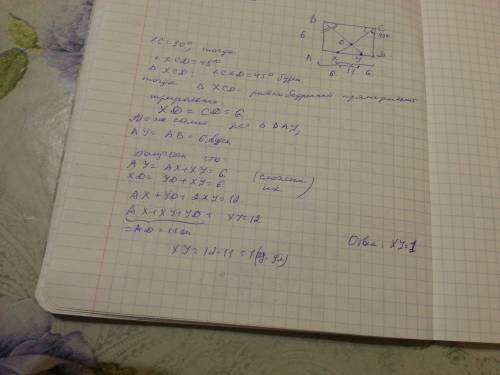 B C
6 O 45°
A X Y D
11
6 6
∠C=90°, тогда
∠XCD=45°
Δ XCD: ∠CXD=45° будет
тогда Δ XCD равнобедренный прямоугольный
треугольник.
XD = CD = 6.
То же самое для Δ BAY,
AY = AB = 6.
Получаем что
AY = AX+XY=6 (сложим
XD = YD+XY=6. их)
AX+YD+2XY=12
AX+XY+YD + XY=12
=AD=11
XY=12-11=1
Ответ: XY=1